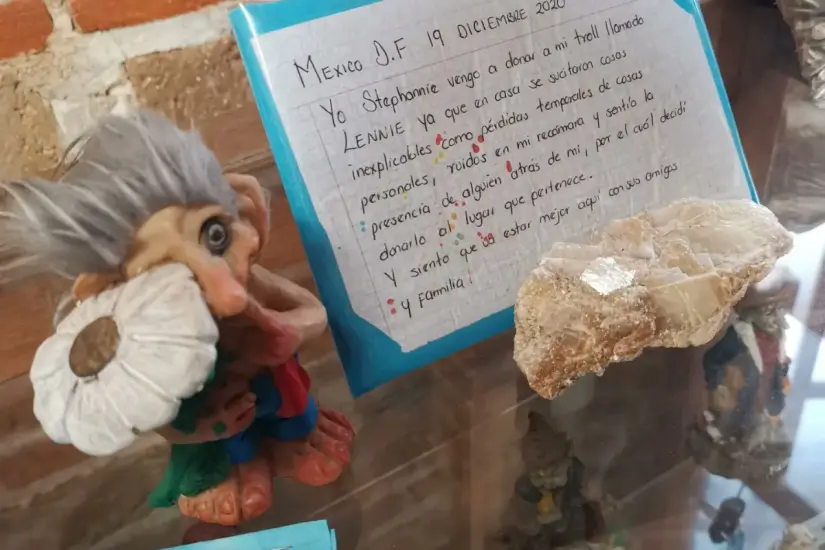 MEXICO D.F 19 DICIEMBRE 2020
Yo Stephannie vengo a donar a mi troll llamado
LENNIE ya que en casa se sucitaron cosas
inexplicables como pérdidas temporales de cosas
personales, ruidos en mi recámara y sentía la
presencia de alguien atrás de mi, por el cuál decidí
donarlo al lugar que pertenece.
Y siento que va estar mejor aquí con sus amigos
y Familia.